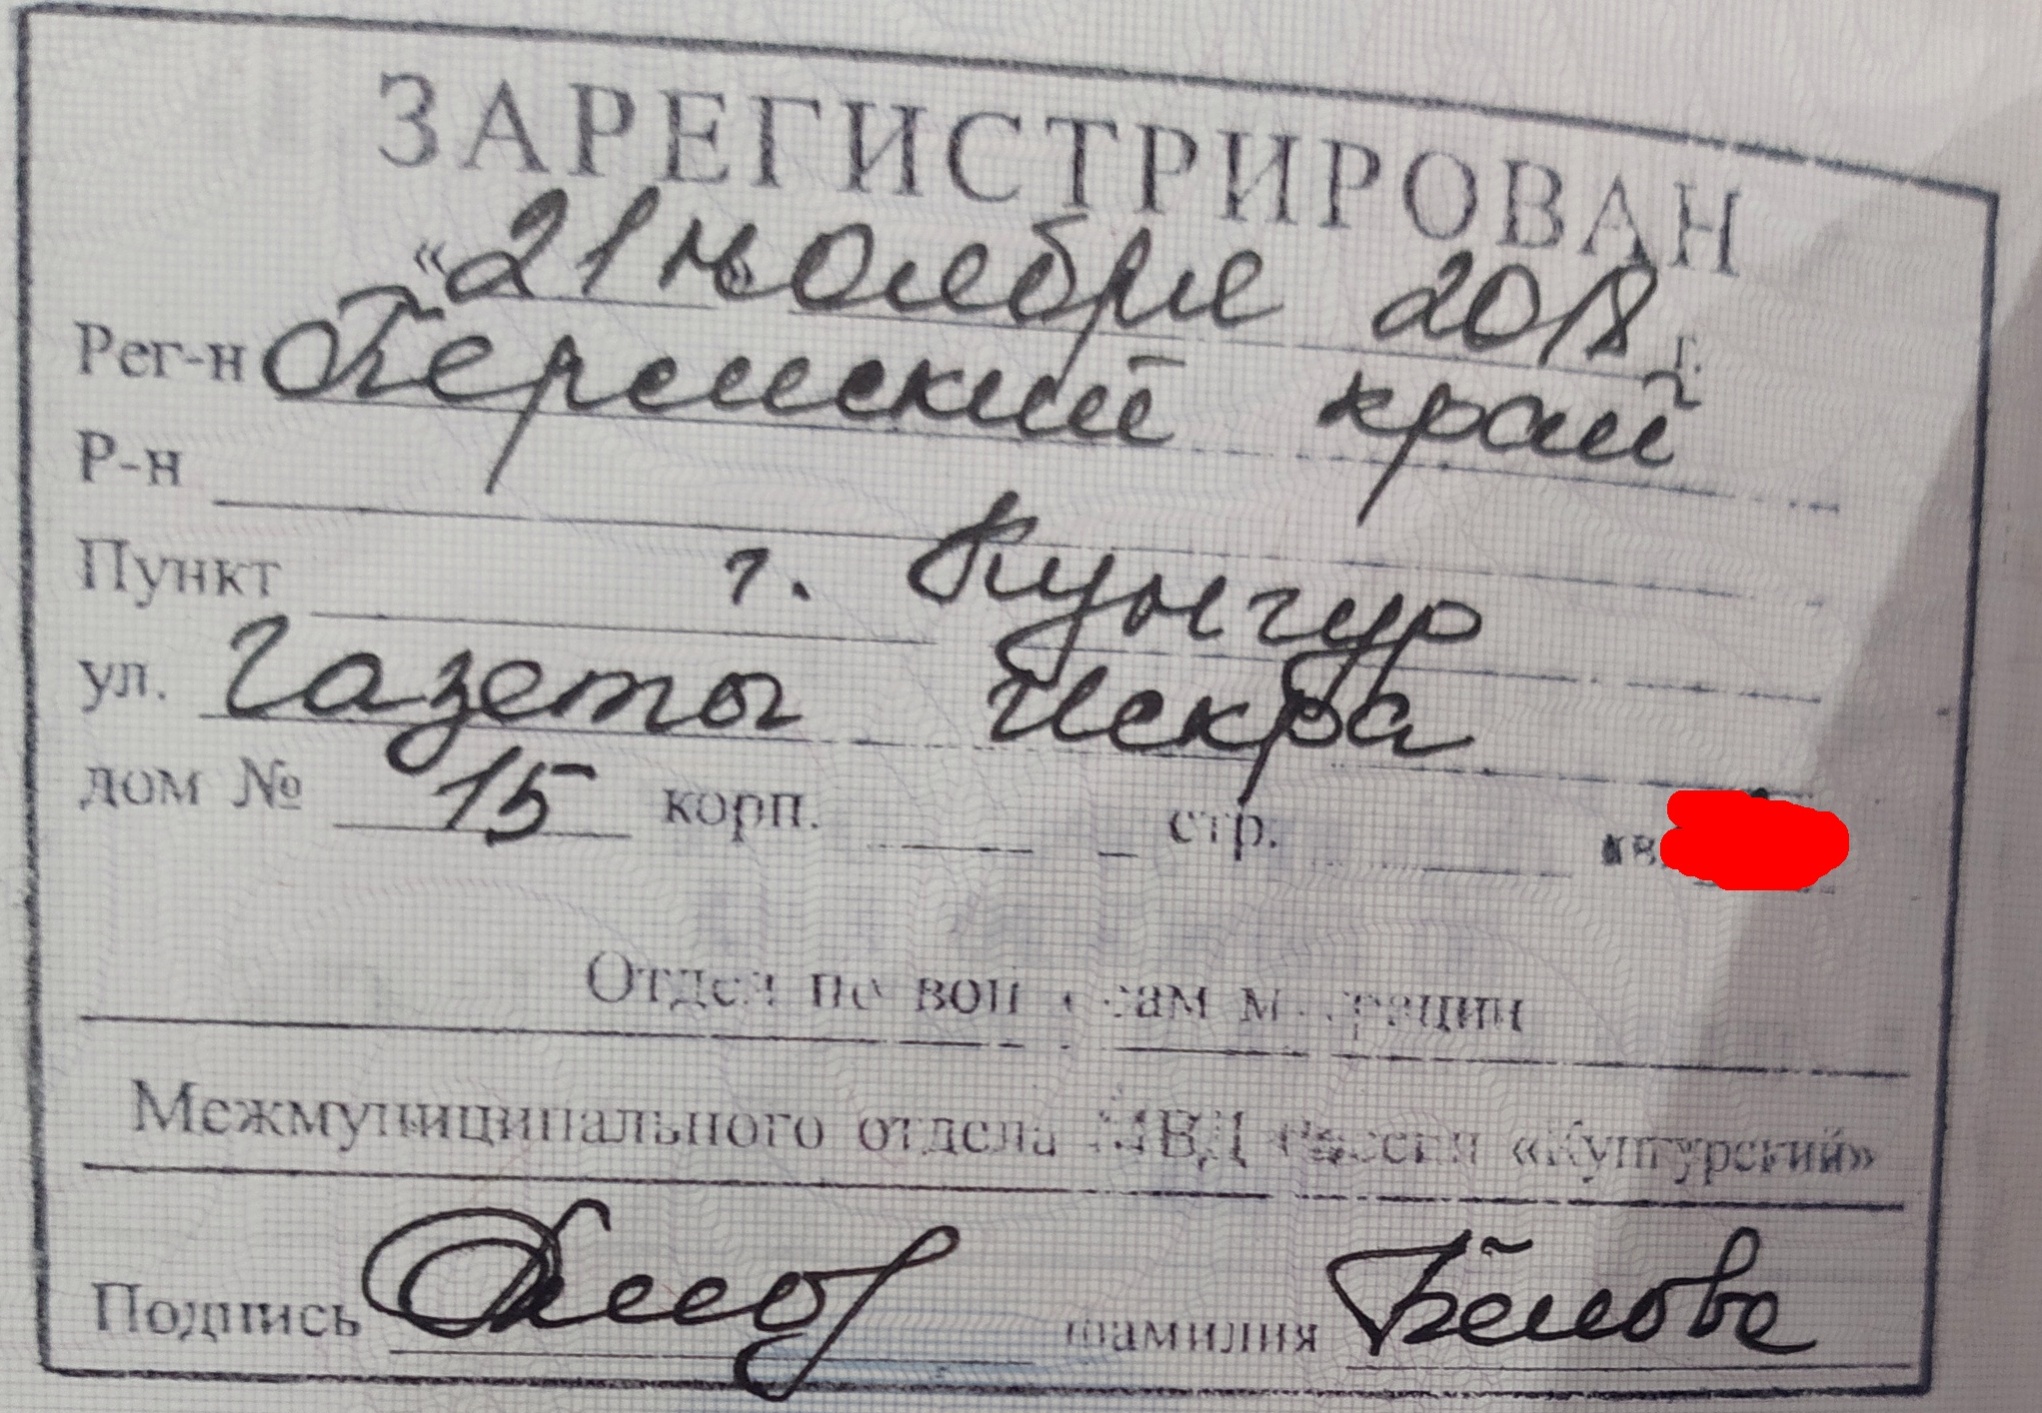 ЗАРЕГИСТРИРОВАН
«21» ноября 2018 г.
Рег-н Пермский край
Р-н
Пункт г. Кунгур
ул. Газеты Искра
дом № 15 корп. стр. кв
Отдел по вопросам миграции
Межмуниципального отдела МВД России «Кунгурский»
Подпись фамилия